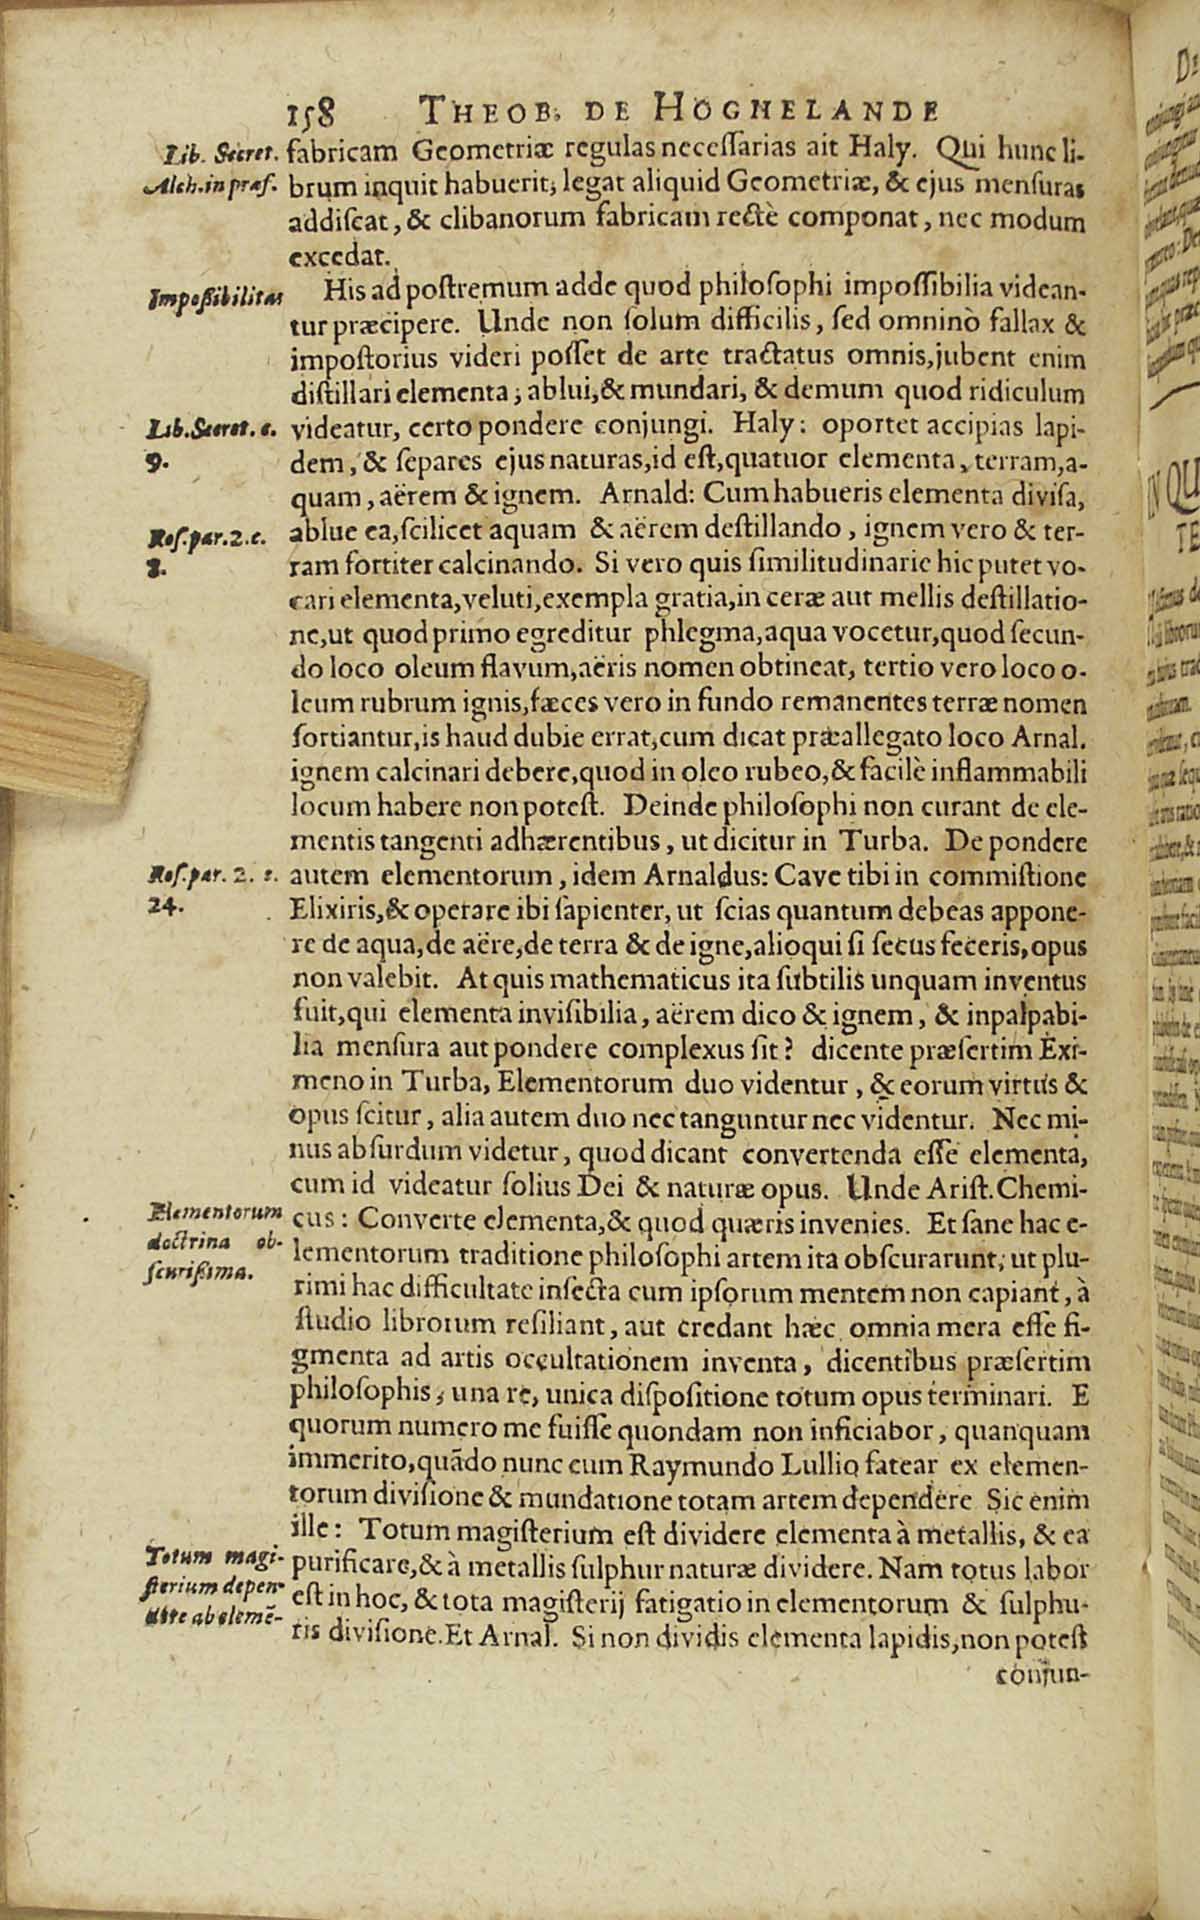 158 THEOB. DE HOGHELANDE
Lib. Secret. fabricam Geometriæ regulas necessarias ait Haly. Qui hunc li-
Alch. in præf. brum inquit habuerit, legat aliquid Geometriæ, & ejus mensuras
addiscat, & clibanorum fabricam rectè componat, nec modum
excedat.
Impossibilitas His ad postremum adde quod philosophi impossibilia videan-
tur præcipere. Unde non solum difficilis, sed omninò fallax &
impostorius videri posset de arte tractatus omnis, jubent enim
distillari elementa; ablui, & mundari, & demum quod ridiculum
Lib. Secret. c. videatur, certo pondere conjungi. Haly: oportet accipias lapi-
9. dem, & separes ejus naturas, id est, quatuor elementa, terram, a-
quam, aërem & ignem. Arnald: Cum habueris elementa divisa,
Ros. par. 2. c. ablue ea, scilicet aquam & aërem destillando, ignem vero & ter-
8. ram fortiter calcinando. Si vero quis similitudinarie hic putet vo-
cari elementa, veluti, exempla gratia, in ceræ aut mellis destillatio-
ne, ut quod primo egreditur phlegma, aqua vocetur, quod secun-
do loco oleum flavum, aëris nomen obtineat, tertio vero loco o-
leum rubrum ignis, fæces vero in fundo remanentes terræ nomen
sortiantur, is haud dubie errat, cum dicat præallegato loco Arnal.
ignem calcinari debere, quod in oleo rubeo, & facilè inflammabili
locum habere non potest. Deinde philosophi non curant de ele-
mentis tangenti adhærentibus, ut dicitur in Turba. De pondere
Ros. par. 2. c. autem elementorum, idem Arnaldus: Cave tibi in commistione
24. Elixiris, & operare ibi sapienter, ut scias quantum debeas appone-
re de aqua, de aëre, de terra & de igne, alioqui si secus feceris, opus
non valebit. At quis mathematicus ita subtilis unquam inventus
fuit, qui elementa invisibilia, aërem dico & ignem, & inpalpabi-
lia mensura aut pondere complexus sit? dicente præsertim Exi-
meno in Turba, Elementorum duo videntur, & eorum virtus &
opus scitur, alia autem duo nec tanguntur nec videntur. Nec mi-
nus absurdum videtur, quod dicant convertenda esse elementa,
cum id videatur solius Dei & naturæ opus. Unde Arist. Chemi-
Elementorum cus: Converte elementa, & quod quæris invenies. Et sane hac e-
doctrina ob- lementorum traditione philosophi artem ita obscurarunt, ut plu-
scurissima. rimi hac difficultate insecta cum ipsorum mentem non capiant, à
studio librorum resiliant, aut credant hæc omnia mera esse fi-
gmenta ad artis occultationem inventa, dicentibus præsertim
philosophis, una re, unica dispositione totum opus terminari. E
quorum numero me fuisse quondam non inficiabor, quanquam
immerito, quādo nunc cum Raymundo Lullio fatear ex elemen-
torum divisione & mundatione totam artem dependere Sic enim
ille: Totum magisterium est dividere elementa à metallis, & ea
Totum magi- purificare, & à metallis sulphur naturæ dividere. Nam totus labor
sterium depen- est in hoc, & tota magisterij fatigatio in elementorum & sulphu-
dere ab elemē- ris divisione. Et Arnal. Si non dividis elementa lapidis, non potest
conjun-